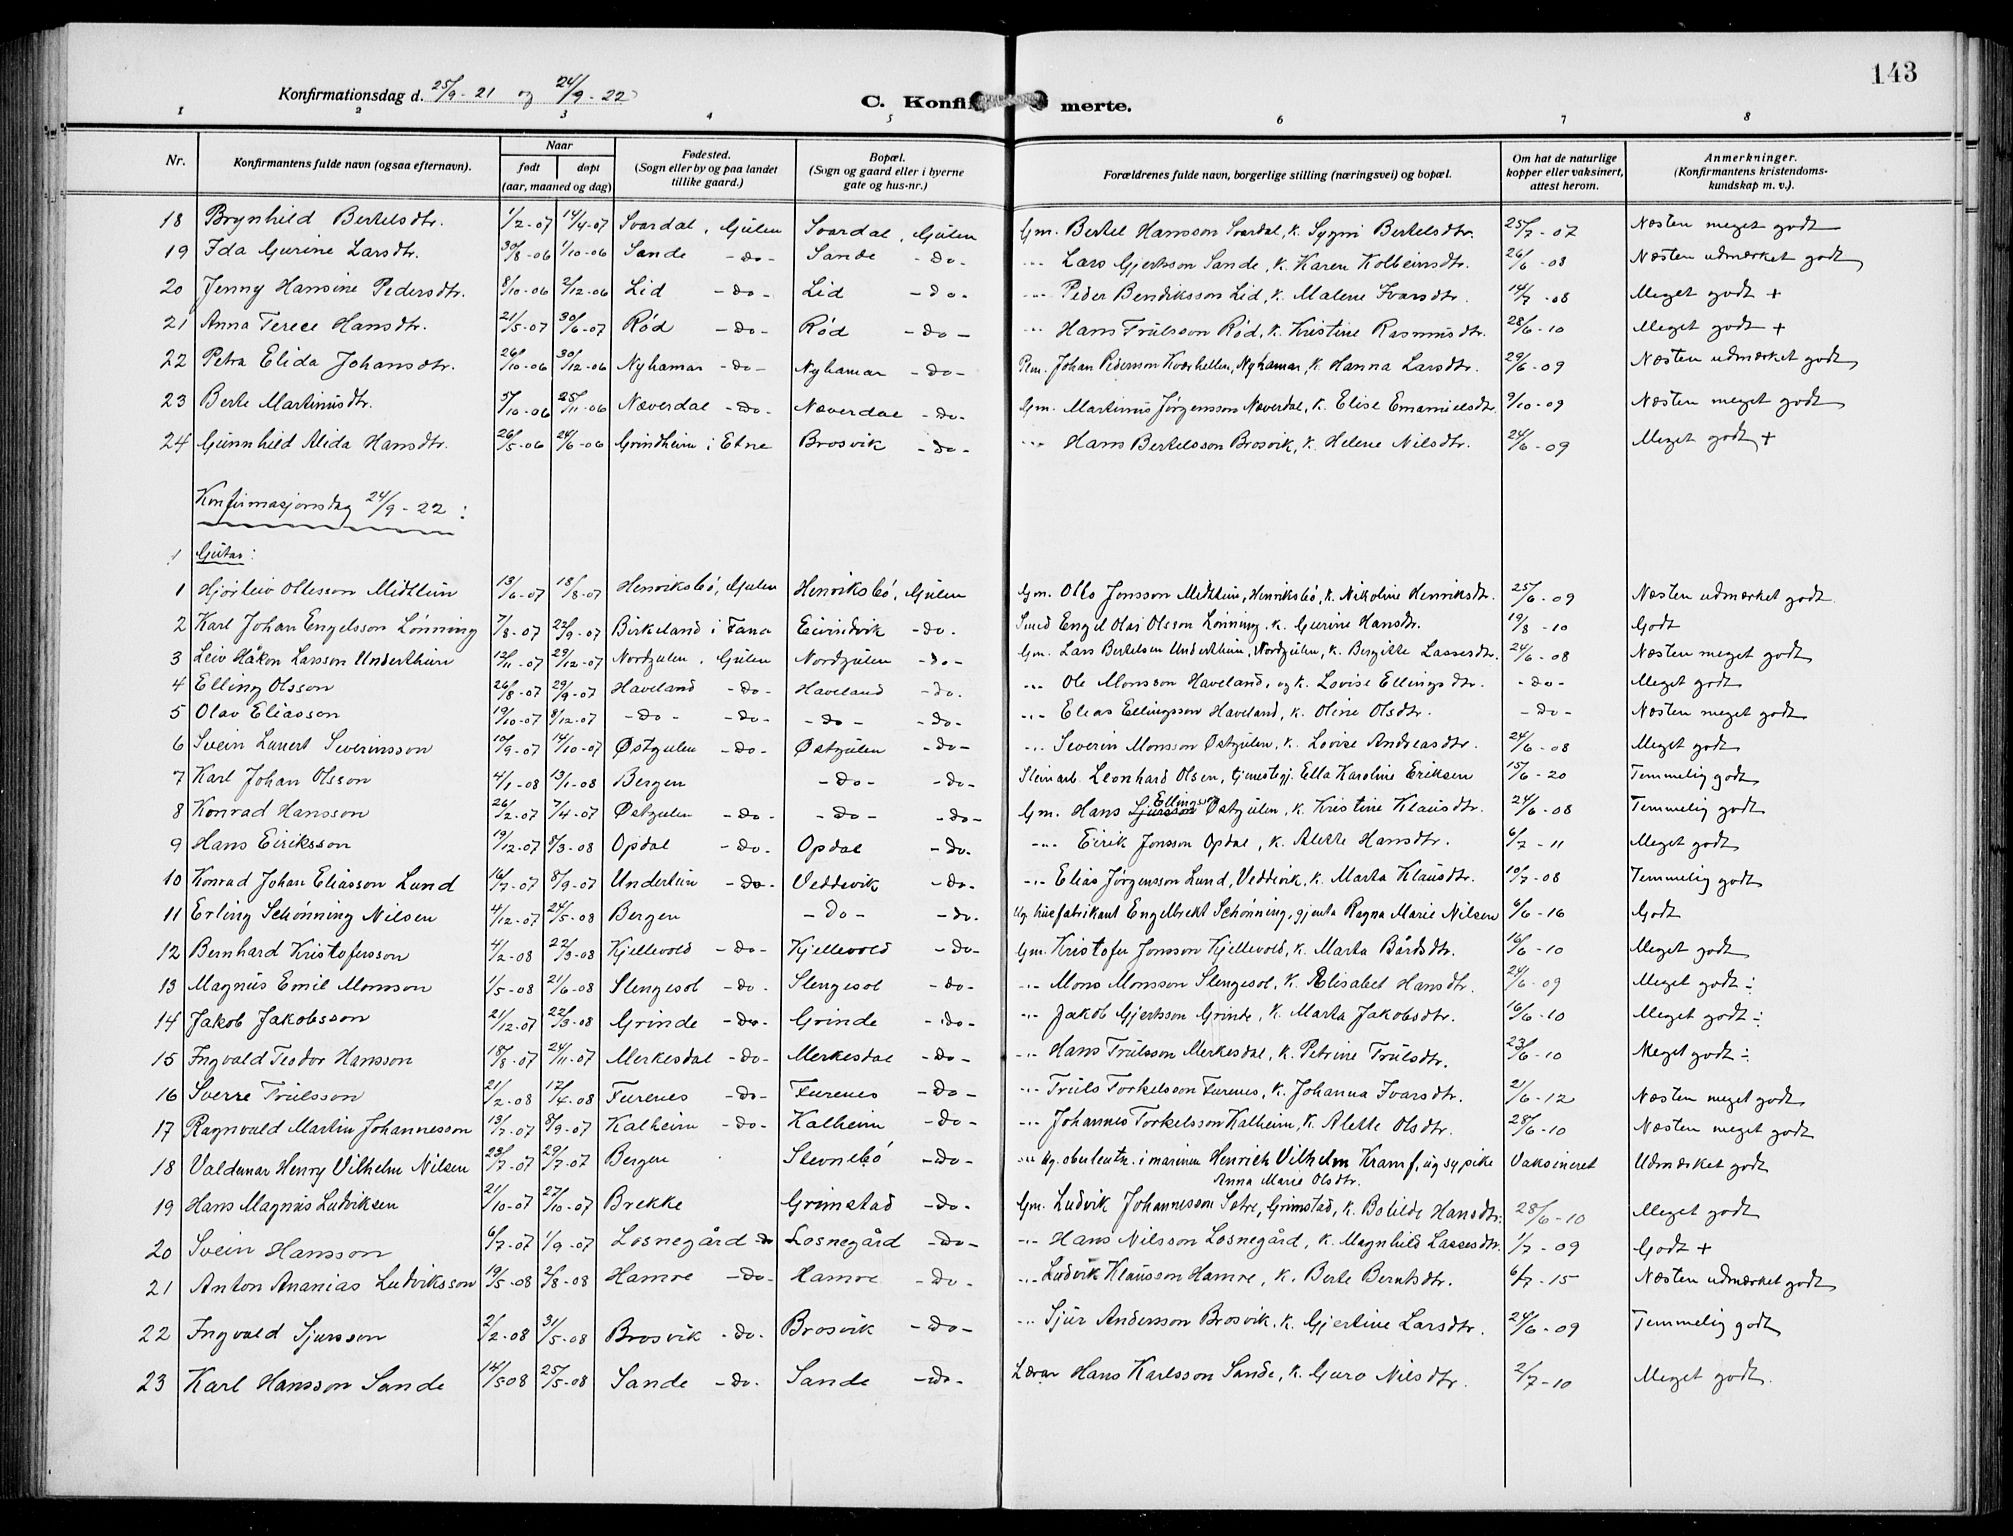 143
Konfirmationsdag d. 25/9 - 21 og 24/9 - 22
C. Konfirmerte.
1 2 3 4 5 6 7 8
Nr. Konfirmantens fulde navn (ogsaa efternavn). Naar født døpt (aar, maaned og dag) Fødested. (Sogn eller by og paa landet tillike gaard.) Bopæl. (Sogn og gaard eller i byerne gate og hus-nr.) Forældrenes fulde navn, borgerlige stilling (næringsvei) og bopæl. Om hat de naturlige kopper eller vaksinert, attest herom. Anmerkninger. (Konfirmantens kristendomskundskap m. v.).
18 Brynhild Bertelsdtr. 1/2-07 14/4-07 Svardal, Gulen Svardal, Gulen Gm. Bertel Hansson Svardal, k. Sygni Bertelsdtr. 25/7-07 Næsten meget godt
19 Ida Gurine Larsdtr. 30/8-06 1/10-06 Sande -do- Sande -do- -"- Lars Gjertsson Sande, k. Karen Kolbeinsdtr. 26/6-08 Næsten udmærket godt
20 Jenny Hansine Pedersdtr. 8/10-06 2/12-06 Lid -do- Lid -do- -"- Peder Bendiksson Lid, k. Malene Ivarsdtr. 14/7-08 Meget godt +
21 Anna Terese Hansdtr. 21/5-07 30/6-07 Rød -do- Rød -do- -"- Hans Trulsson Rød, k. Kristine Rasmusdtr. 28/6-10 Meget godt +
22 Petra Elida Johansdtr. 26/10-06 30/12-06 Nyhamar -do- Nyhamar -do- Pm. Johan Pedersson Kværhellen, Nyhamar, k. Hanna Larsdtr. 29/6-09 Næsten udmærket godt
23 Berte Martinusdtr. 5/10-06 25/11-06 Næverdal -do- Næverdal -do- Gm. Martinus Jørgensson Næverdal, k. Elise Emanuelsdtr. 9/10-09 Næsten meget godt
24 Gunnhild Alida Hansdtr. 26/5-06 24/6-06 Grindheim i Etne Brosvik -do- -"- Hans Bertelsson Brosvik, k. Helene Nilsdtr. 24/6-09 Meget godt +
Konfirmasjonsdag 24/9-22:
Gutar:
1 Hjørleiv Ottesson Midttun 13/6-07 18/8-07 Henriksbø, Gulen Henriksbø, Gulen Gm. Otto Jonsson Midttun, Henriksbø, k. Nikoline Henriksdtr. 25/6-09 Næsten udmærket godt
2 Karl Johan Engelsson Lønning 7/8-07 22/9-07 Birkeland i Fana Eivindvik -do- Smed Engel Olai Olsson Lønning, k. Gurine Hansdtr. 19/8-10 Godt
3 Leiv Håkon Larsson Underthun 12/11-07 29/12-07 Nordgulen, Gulen Nordgulen -do- Gm. Lars Bertelsen Underthun, Nordgulen, k. Bergitte Lassesdtr. 24/6-08 Næsten meget godt
4 Elling Olsson 26/8-07 29/9-07 Haveland -do- Haveland -do- -"- Ole Monsson Haveland, og k. Lovise Ellingsdtr. -do- Meget godt
5 Olav Eliasson 19/10-07 8/12-07 -do- -do- -do- -do- -"- Elias Ellingsson Haveland, k. Oline Olsdtr. -do- Næsten meget godt
6 Svein Lauert Severinsson 10/9-07 14/10-07 Østgulen -do- Østgulen -do- -"- Severin Monsson Østgulen, k. Lovise Andreasdtr. 24/6-08 Meget godt
7 Karl Johan Olsson 4/1-08 13/1-08 Bergen -do- -do- Steinarb. Leonhard Olsen, tjenestegj. Ella Karoline Eriksen 15/6-20 Temmelig godt
8 Konrad Hansson 26/2-07 7/4-07 Østgulen -do- -do- -do- Gm. Hans Sjursson Ellings Østgulen, k. Kristine Klausdtr. 24/6-08 Temmelig godt
9 Hans Eiriksson 19/12-07 8/3-08 Opdal -do- Opdal -do- -"- Eirik Jonsson Opdal, k. Alette Hansdtr. 6/7-11 Meget godt
10 Konrad Johan Eliasson Lund 16/7-07 8/9-07 Undertun -do- Veddevik -do- -"- Elias Jørgensson Lund, Veddevik, k. Marta Klausdtr. 10/7-08 Temmelig godt
11 Erling Schønning Nilsen 4/12-07 24/5-08 Bergen -do- -do- Ug. huefabrikant Engelbrekt Schønning, gjenta Ragna Marie Nilsen 6/6-16 Godt
12 Bernhard Kristofersson 4/2-08 22/3-08 Kjellevold -do- Kjellevold -do- Gm. Kristofer Jonsson Kjellevold, k. Marta Bårdsdtr. 16/6-10 Meget godt
13 Magnus Emil Monsson 1/5-08 21/6-08 Slengesol -do- Slengesol -do- -"- Mons Monsson Slengesol, k. Elisabet Hansdtr. 24/6-09 Meget godt ÷
14 Jakob Jakobsson 21/12-07 22/3-08 Grinde -do- Grinde -do- -"- Jakob Gjertsson Grinde, k. Marta Jakobsdtr. 16/6-10 Meget godt ÷
15 Ingvald Teodor Hansson 18/8-07 24/11-07 Merkesdal -do- Merkesdal -do- -"- Hans Trulsson Merkesdal, k. Petrine Trulsdtr. 23/6-10 Meget godt ÷
16 Sverre Trulsson 21/2-08 12/4-08 Furenes -do- Furenes -do- -"- Truls Torkelsson Furenes, k. Johanna Ivarsdtr. 21/6-12 Næsten meget godt
17 Ragnvald Martin Johannesson 13/7-07 8/9-07 Kalheim -do- Kalheim -do- -"- Johannes Torkelsson Kalheim, k. Alette Olsdtr. 28/6-10 Næsten meget godt
18 Valdemar Henry Vilhelm Nilsen 23/7-07 29/7-07 Bergen Stevnebø -do- -"- Ug. oberleutn. i marinen Henrich Vilhelm Kramf, ug sypike Anna Marie Olsdtr. Vaksineret Udmærket godt
19 Hans Magnus Ludviksen 21/10-07 27/10-07 Brekke Grimstad -do- Gm. Ludvik Johannesson Sætre, Grimstad, k. Bolilde Hansdtr. 28/6-10 Meget godt
20 Svein Hansson 6/7-07 1/9-07 Losnegård -do- Losnegård -do- -"- Hans Nilsson Losnegård, k. Magnhild Lassesdtr. 1/7-09 Godt +
21 Anton Ananias Ludviksson 19/5-08 2/8-08 Hamre -do- Hamre -do- -"- Ludvik Klausson Hamre, k. Berte Berntsdtr. 6/7-15 Næsten udmærket godt
22 Ingvald Sjursson 2/2-08 31/5-08 Brosvik -do- Brosvik -do- -"- Sjur Andersson Brosvik, k. Gjertine Larsdtr. 24/6-09 Temmelig godt
23 Karl Hansson Sande 14/5-08 25/5-08 Sande -do- Sande -do- Lærar Hans Karlsson Sande, k. Guro Nilsdtr. 2/7-10 Meget godt.